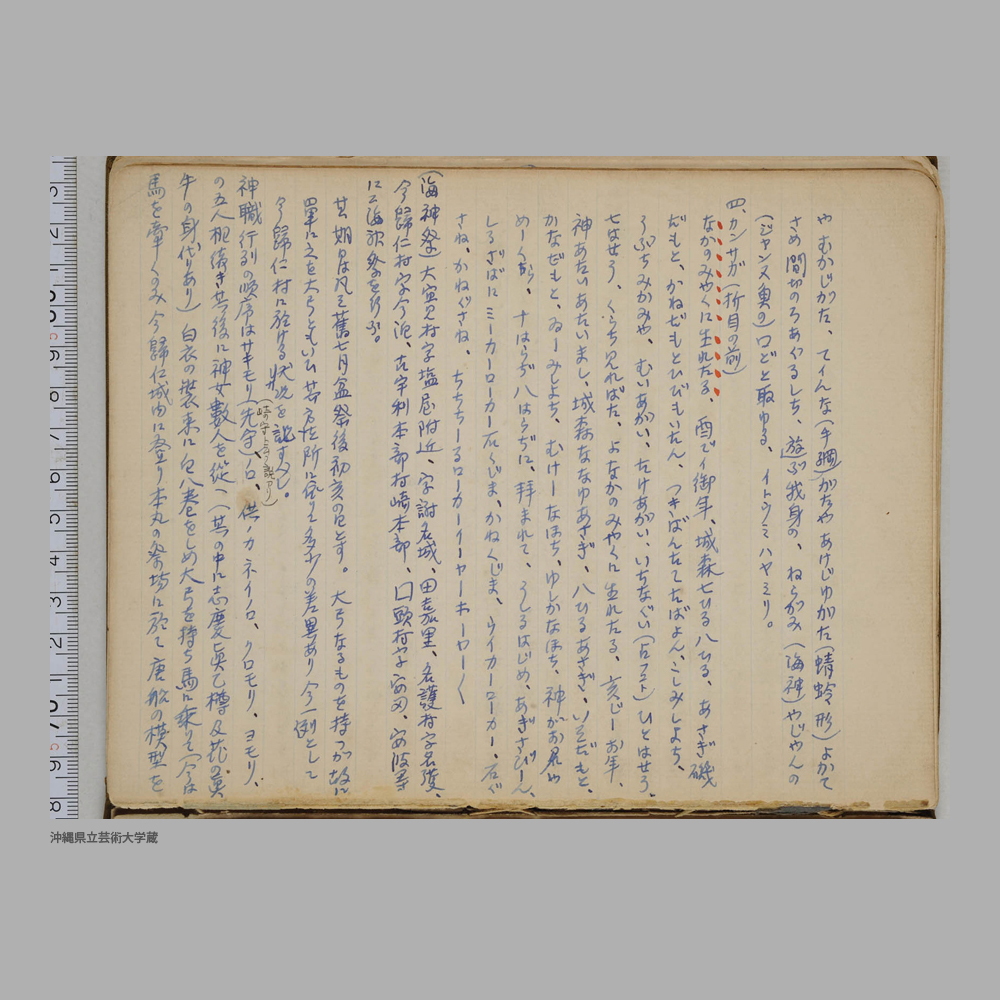 や むかじがた、てぃんな(手綱)がたや あけじゆがた(蜻蛉形)よかて
さめ 間切のろあぐるしち、遊ぶ我身の、ねらかみ(海神)やじゃんの
(ジャンヌ魚の)口どと取ゆる、イトウミハヤミリ。
四、カンサガ(折目の前)
なかのみやくに生れたる、酉でィ御年、城森七ひる八ひる、あさぎ磯
だもと、かねだもとひびもいたん、つきばんたてたばよん、こしみしよち、
うぶちみかみや、むいあがい、たけあがい、いちなぐい ひとはせう
七はせう、くらち見ればた、よなかのみやくに生れたる、亥じー お年、
神あたいあたいまし、城森ななゆあさぎ、八ひるあさぎ、いそだもと、
かなだもと、ゐーみしよち、むけーなほち、ゆしかなほち、神がお尻や
めーくから、十はらぢ八はらぢに、拝まれて、うしるはじめ、あぎさびーん、
しるざばにミーカーローカー石くじま、かねくじま、ウイカーローカー、石ぐ
さね、かねぐさね、ちちちーるローカーイーヤーホーロー
(海神祭)大宜見村字塩屋附近、字謝名城、田嘉里、名護村字名護、
今歸仁村字今泊、古宇利本部村崎本部、口頭村字安田、安波等
に海神祭を行ふ。
其期日は凡そ舊七月盆祭後初亥の日とす。大弓なるものを持つが故に
單に之を大弓ともいひ其方法所に依りて多少の差異あり今一例として
今歸仁村に於ける状況を記すべし。
神職行列の順序はサキモリ(先守)ノロ、供ノカネイノロ、クロモリ、ヨモリ、
の五人相續き其後に神女數人を從へ(其の中に志慶眞乙樽及
牛の身代りあり)白衣の裝束に 八巻をしめ大弓を持ち馬に乘りて(今は
馬を牽くのみ 今歸仁城内に登り本丸の祭場に於て唐船の模型を
沖縄県立芸術大学蔵